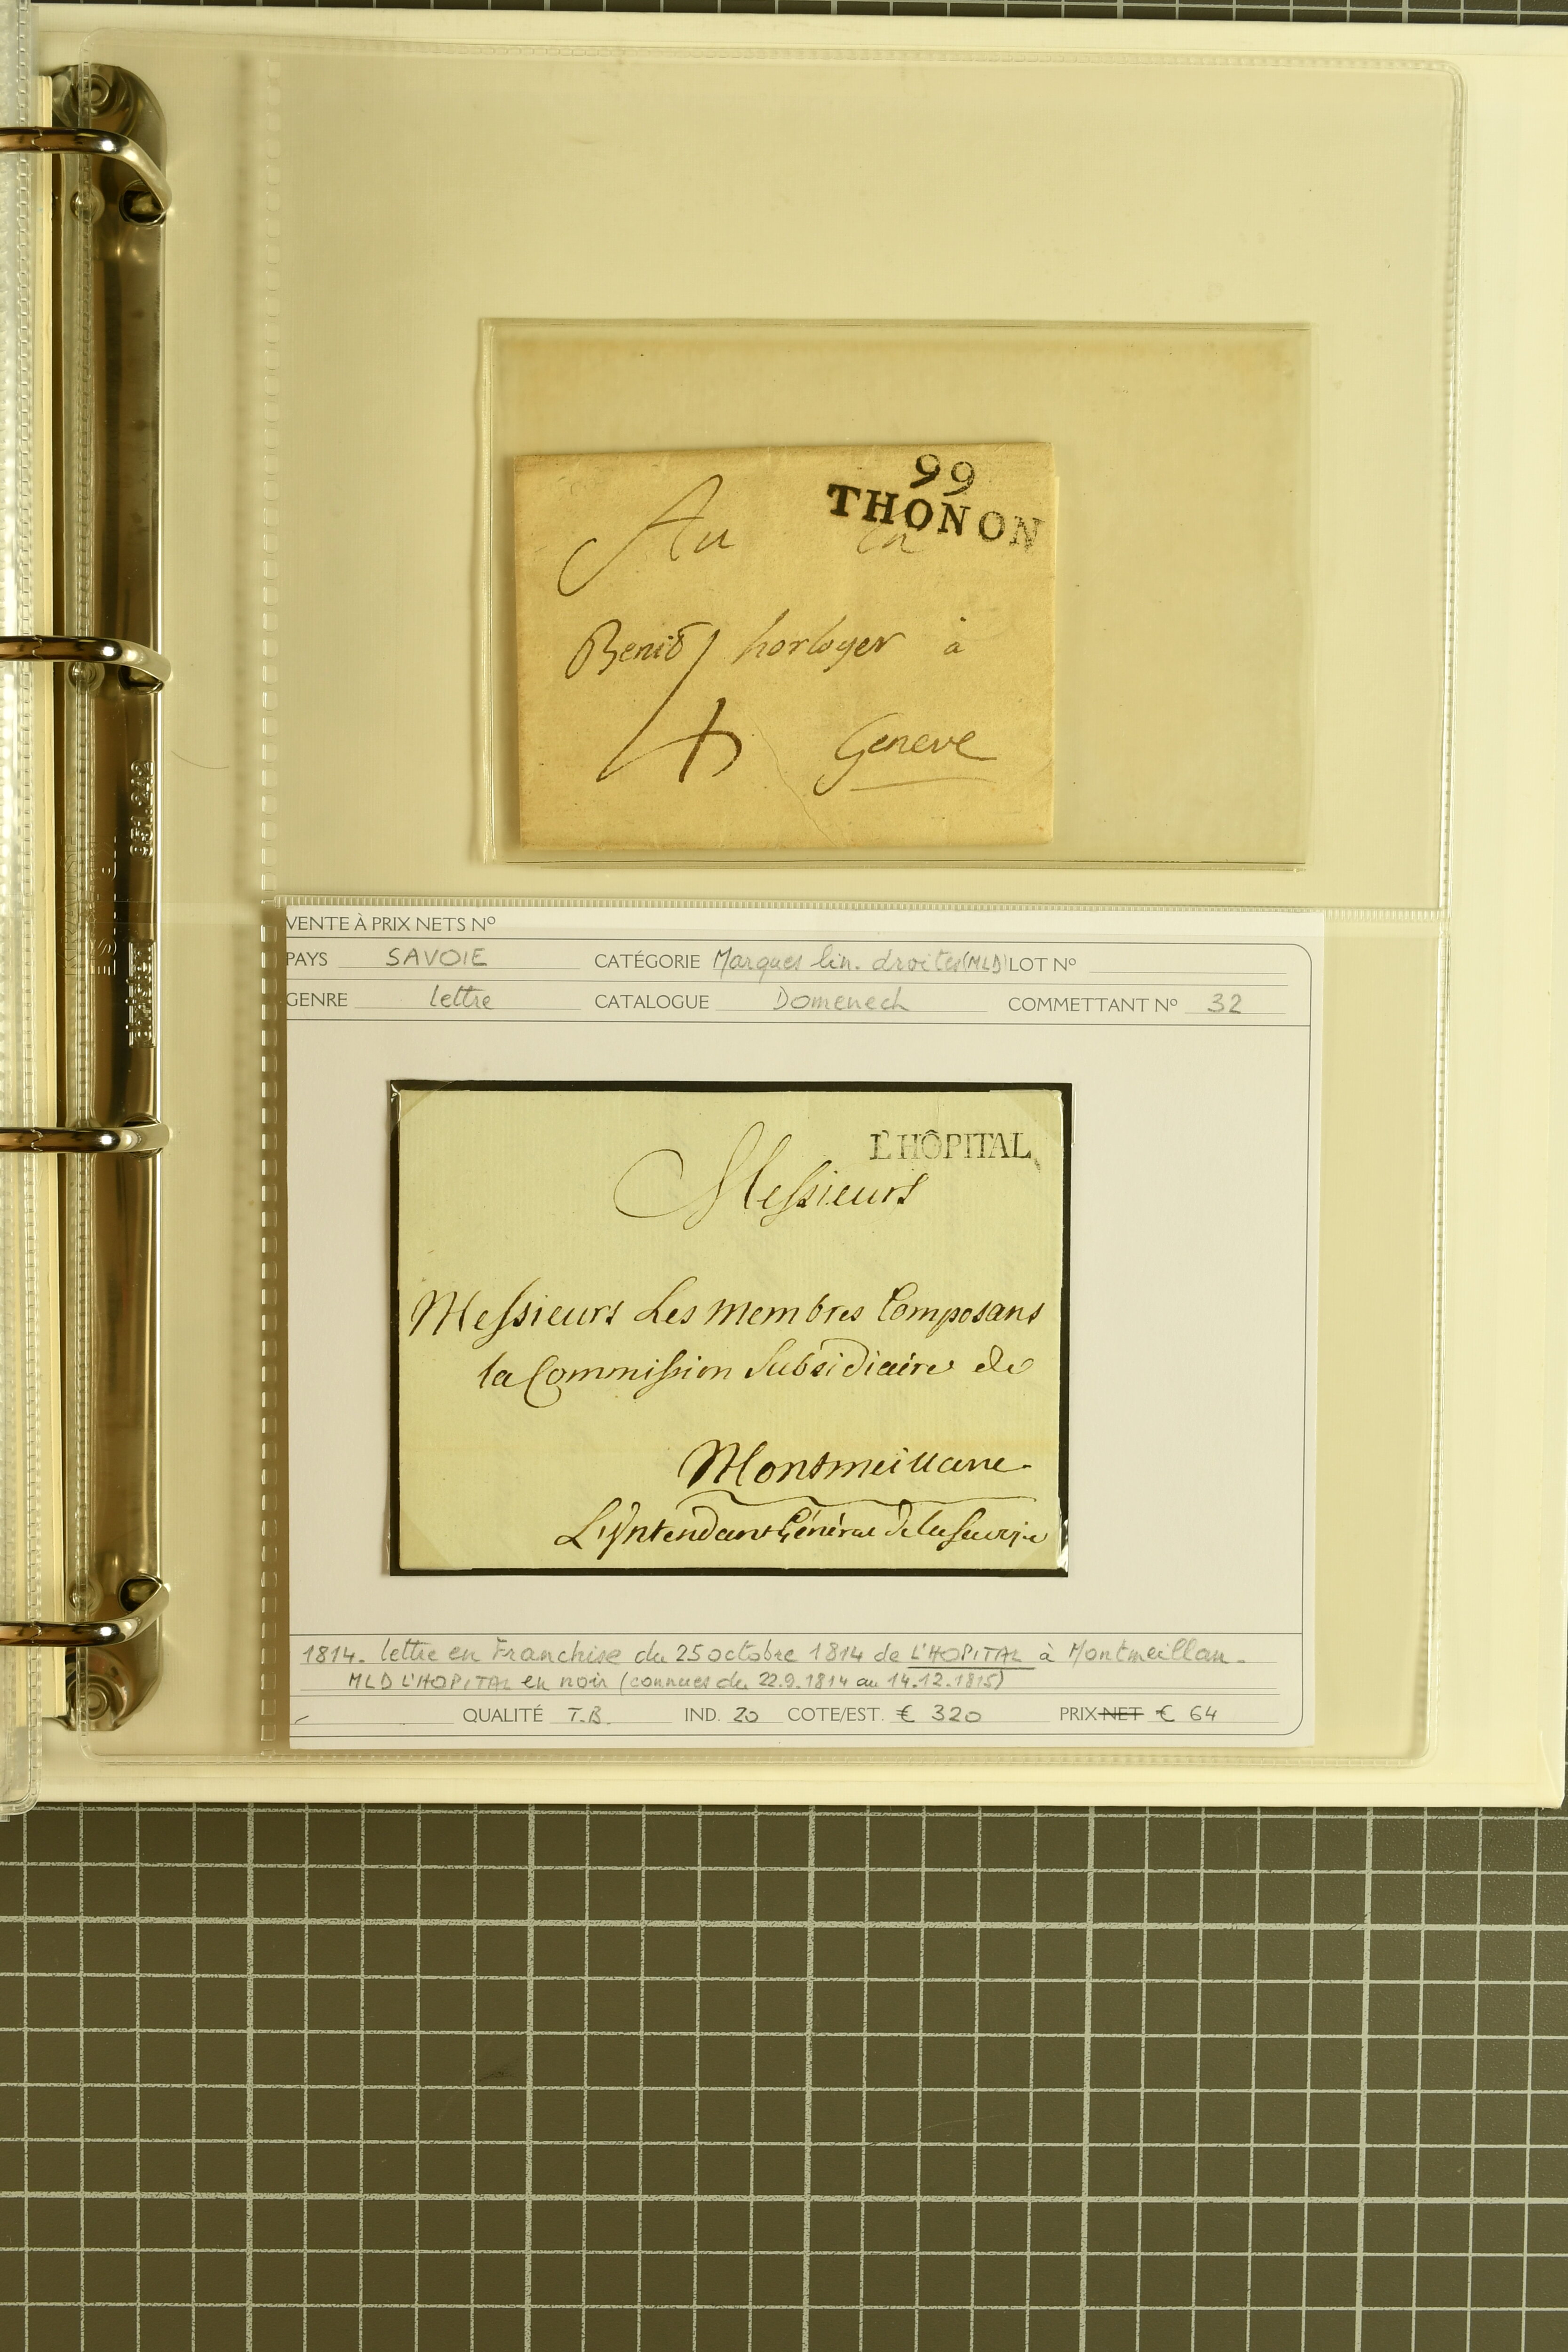 99
THONON
Au Cn
Benid horloger à
4
Geneve
VENTE À PRIX NETS Nº
PAYS SAVOIE CATÉGORIE Marques lin. droites (MLD) LOT Nº
GENRE lettre CATALOGUE Domenech COMMETTANT Nº 32
L'HÔPITAL
Messieurs
Messieurs Les membres Composans
la Commission Subsidiaire de
Montmeillane
L'Intendant Général de la Savoje
1814. lettre en Franchise du 25 octobre 1814 de L'HOPITAL à Montmeillan.
MLD L'HOPITAL en noir (connues du 22.9.1814 au 14.12.1815)
QUALITÉ T.B. IND. 20 COTE/EST. € 320 PRIX NET € 64